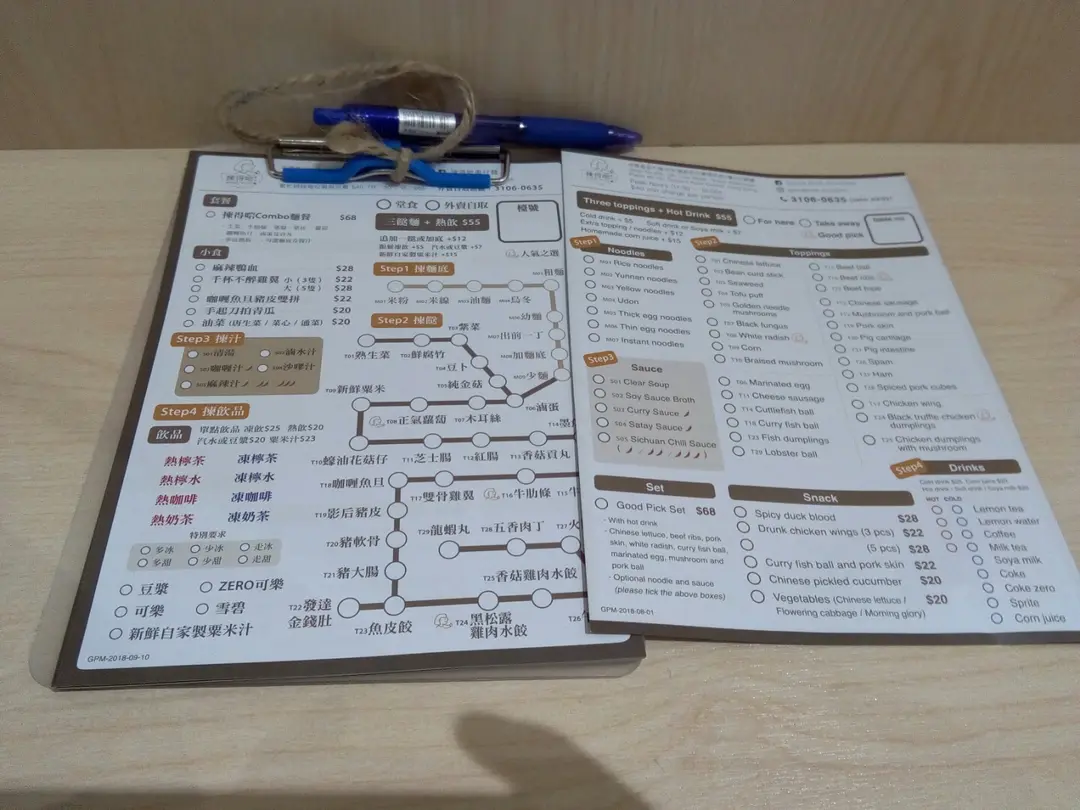 揀得啱
3106-0635
堂食 外賣自取
檯號
套餐
揀得啱Combo麵餐 $68
三餸麵 + 熱飲 $55
追加一餸或加底 +$12
凍飲 +$5 汽水或豆漿 +$7
新鮮自家製粟米汁 +$15
人氣之選
小食
麻辣鴨血 $28
千杯不醉雞翼 小 (3隻) $22
大 (5隻) $28
咖喱魚旦豬皮雙拼 $22
手起刀拍青瓜 $20
油菜 (唐生菜 / 菜心 / 通菜) $20
Step1 揀麵底
M01 粗麵
M07 米粉 M02 米線 M03 油麵 M04 烏冬
M06 幼麵
M07 出前一丁
M08 加麵底
M09 少麵
Step2 揀餸
T03 紫菜
T01 熟生菜 T02 鮮腐竹
T04 豆卜
T05 純金菇
Step3 揀汁
S01 清湯 S02 滷水汁
S03 咖喱汁 S04 沙嗲汁
S05 麻辣汁
T09 新鮮粟米
T08 正氣蘿蔔 T07 木耳絲 T06 滷蛋
T10 蠔油花菇仔 T11 芝士腸 T12 紅腸 T13 香菇貢丸 T14
Step4 揀飲品
飲品 單點飲品 凍飲$25 熱飲$20
汽水或豆漿$20 粟米汁$23
熱檸茶 凍檸茶
熱檸水 凍檸水
熱咖啡 凍咖啡
熱奶茶 凍奶茶
特別要求
多冰 少冰 走冰
多甜 少甜 走甜
豆漿 ZERO可樂
可樂 雪碧
新鮮自家製粟米汁
T18 咖喱魚旦 T17 雙骨雞翼 T16 牛肋條 T15
T19 影后豬皮 T29 龍蝦丸 T28 五香肉丁 T27
T20 豬軟骨
T21 豬大腸 T25 香菇雞肉水餃
T22 發達金錢肚 T23 魚皮餃 T24 黑松露雞肉水餃 T26
GPM-2018-09-10
揀得啱
3106-0635
Three toppings + Hot Drink $55
For here Take away
Cold drink + $5 Soft drink or Soya milk + $7
Extra topping / noodles + $12
Homemade corn juice + $15
Good pick
Step1
Noodles
M01 Rice noodles
M02 Yunnan noodles
M03 Yellow noodles
M04 Udon
M05 Thick egg noodles
M06 Thin egg noodles
M07 Instant noodles
Step2
Toppings
T01 Chinese lettuce
T02 Bean curd stick
T03 Seaweed
T04 Tofu puff
T05 Golden needle mushrooms
T07 Black fungus
T08 White radish
T09 Corn
T10 Braised mushroom
T06 Marinated egg
T11 Cheese sausage
T14 Cuttlefish ball
T18 Curry fish ball
T23 Fish dumplings
T29 Lobster ball
Beef ball
Beef rib
Beef tripe
Chinese sausage
Mushroom and pork ball
Pork skin
Pig cartilage
Pig intestine
Spam
Ham
Spiced pork cubes
Chicken wing
T24 Black truffle chicken dumplings
T25 Chicken dumplings with mushroom
Step3
Sauce
S01 Clear Soup
S02 Soy Sauce Broth
S03 Curry Sauce
S04 Satay Sauce
S05 Sichuan Chili Sauce
Set
Good Pick Set $68
- With hot drink
- Chinese lettuce, beef ribs, pork skin, white radish, curry fish ball, marinated egg, mushroom and pork ball
- Optional noodle and sauce
(please tick the above boxes)
Snack
Spicy duck blood $28
Drunk chicken wings (3 pcs) $22
(5 pcs) $28
Curry fish ball and pork skin $22
Chinese pickled cucumber $20
Vegetables (Chinese lettuce / Flowering cabbage / Morning glory) $20
Step4
Drinks
HOT COLD
Lemon tea
Lemon water
Coffee
Milk tea
Soya milk
Coke
Coke zero
Sprite
Corn juice
GPM-2018-08-01